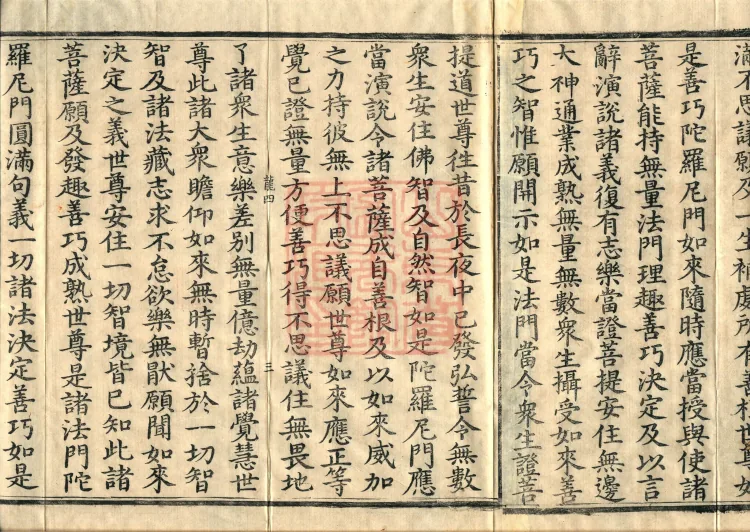 滿不思議願又一生補處所有善根世尊如
是善巧陀羅尼門如來隨時應當授與使諸
菩薩能持無量法門理趣善巧決定及以言
辭演說諸義復有志樂當證菩提安住無邊
大神通業成熟無量無數衆生攝受如來善
巧之智惟願開示如是法門當令衆生證菩
提道世尊往昔於長夜中已發弘誓令無數
衆生安住佛智及自然智如是陀羅尼門應
當演說令諸菩薩成自善根及以如來威加
之力持彼無上不思議願世尊如來應正等
覺已證無量方便善巧得不思議住無畏地
龍四 三
了諸衆生意樂差別無量億劫蘊諸覺慧世
尊此諸大衆瞻仰如來無時暫捨於一切智
智及諸法藏志求不怠欲樂無猒願聞如來
決定之義世尊安住一切智境皆已知此諸
菩薩願及發趣善巧成熟世尊是諸法門陀
羅尼門圓滿句義一切諸法決定善巧如是